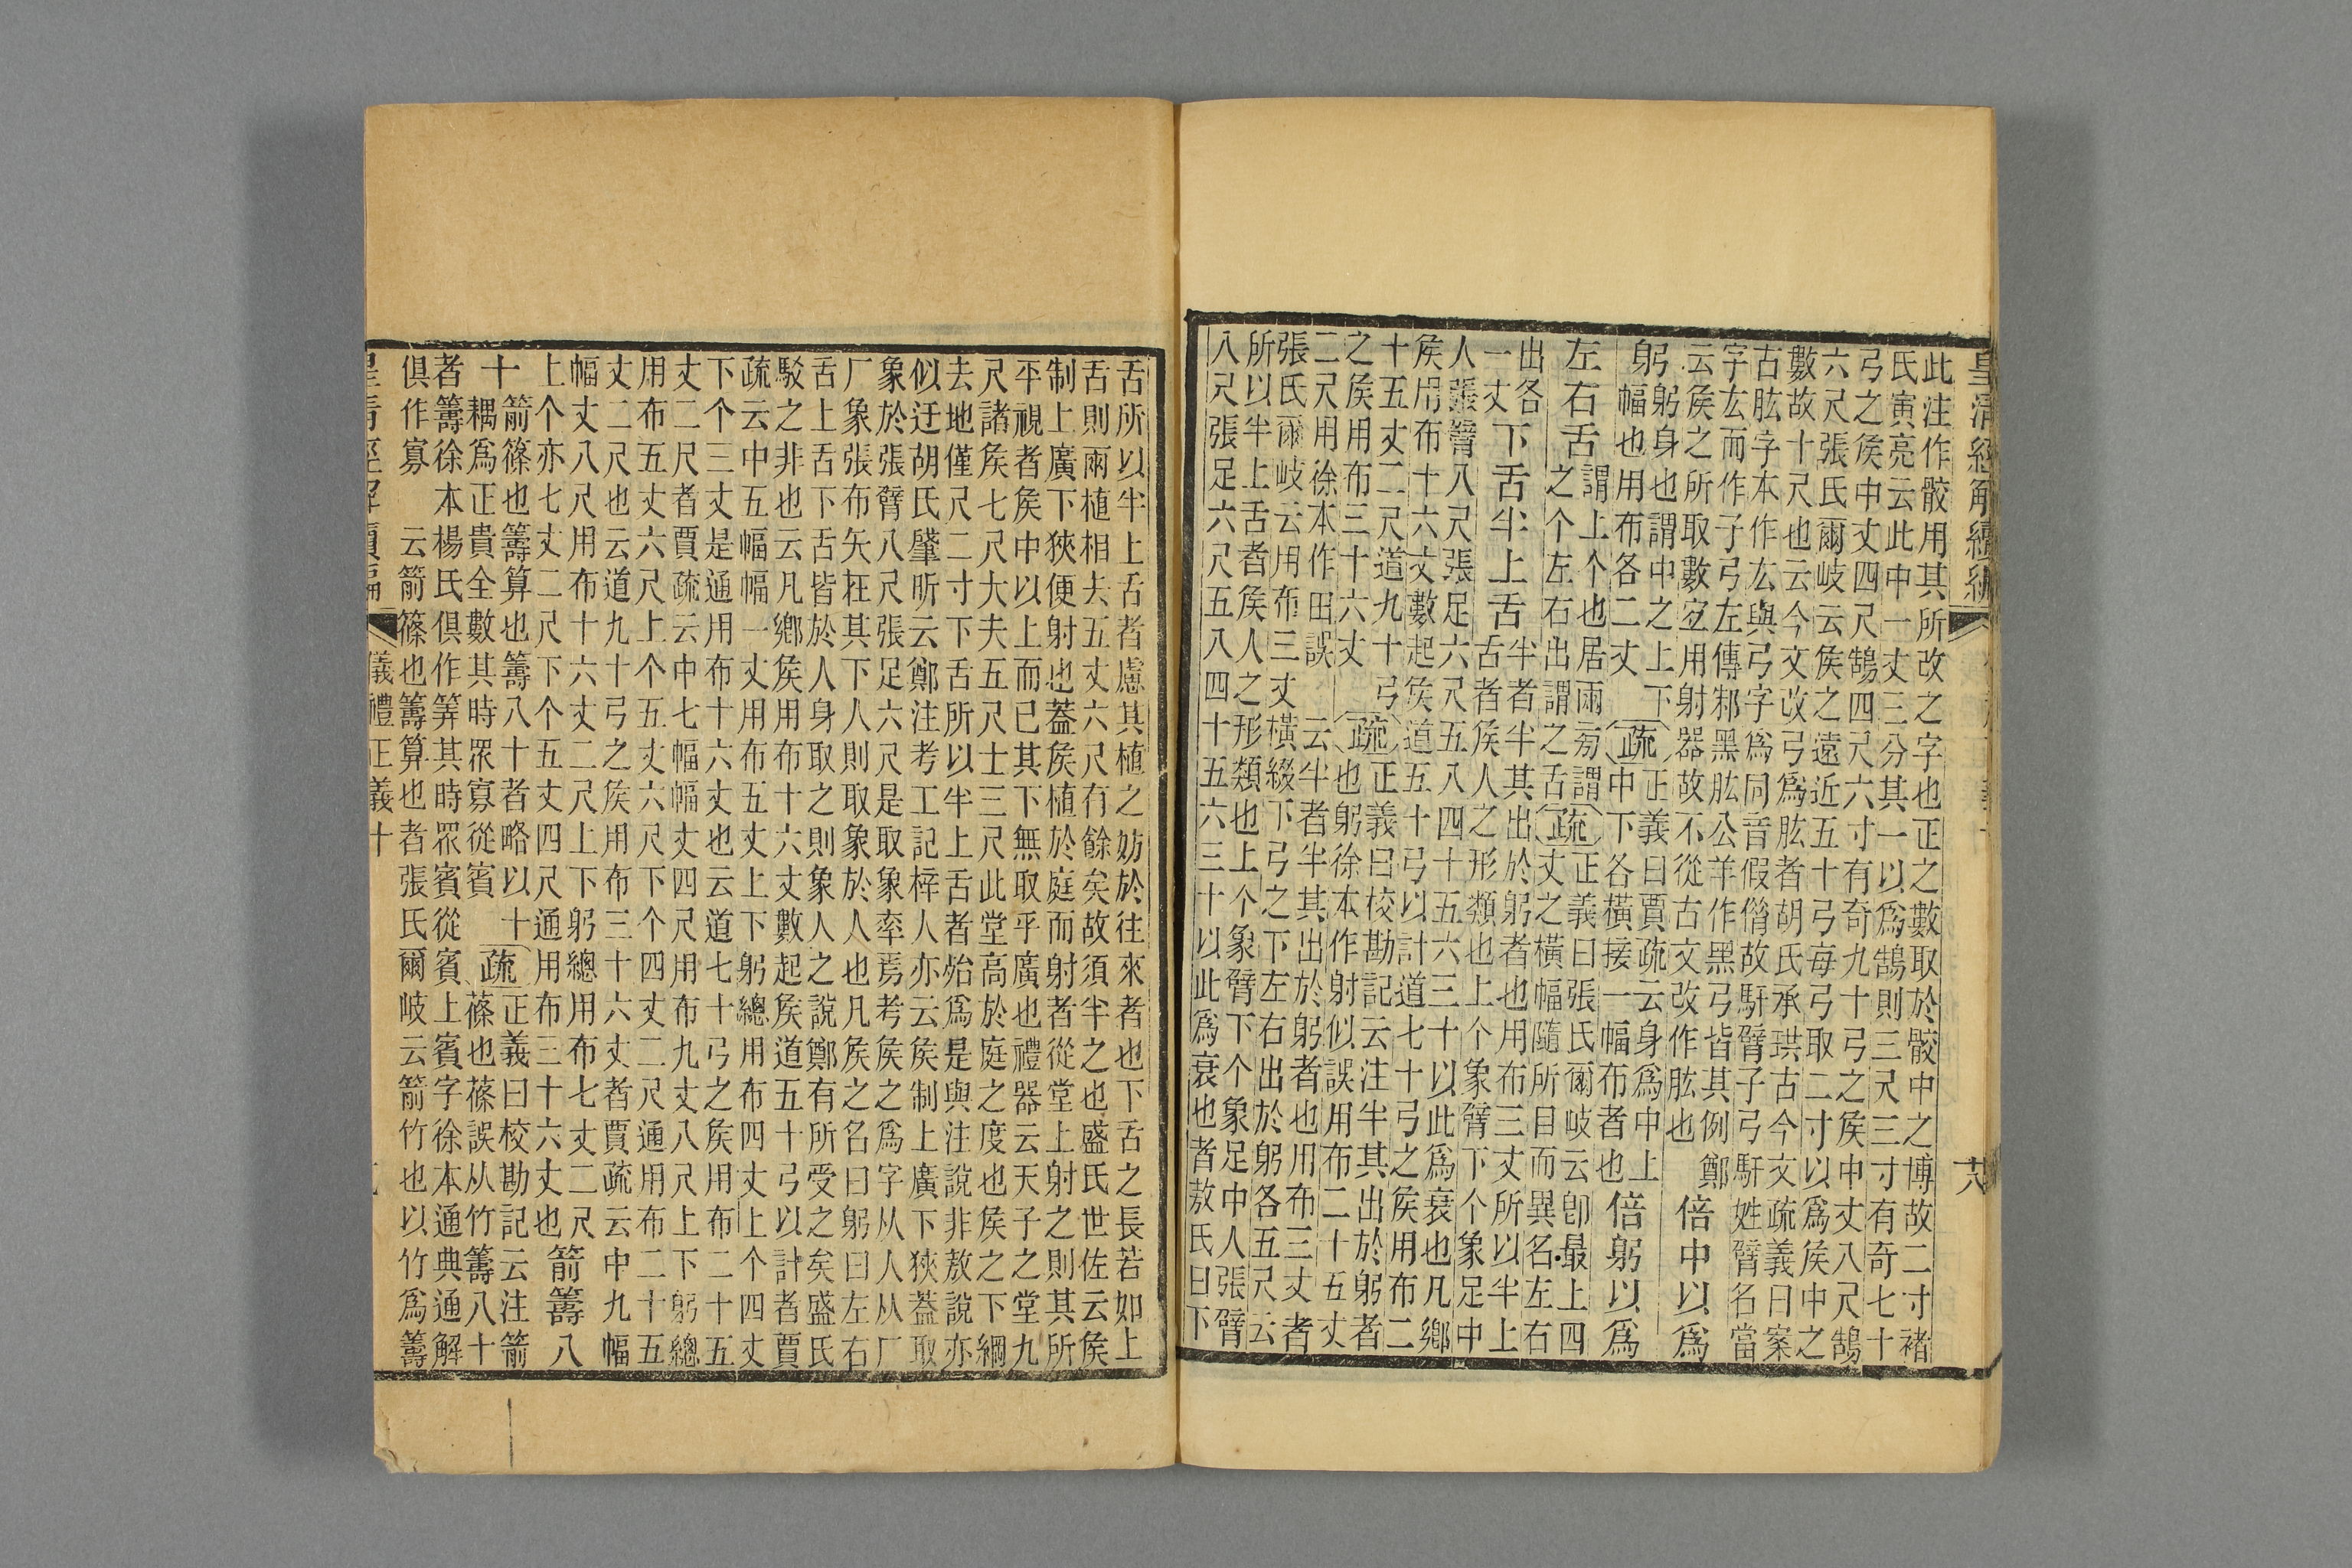 皇清經解續編
此注作骹用其所改之字也正之數取於骹中之博故二寸褚
氏寅亮云此中一丈三分其一以爲鵠則三尺三寸有奇七十
弓之矦中丈四尺鵠四尺六寸有奇九十弓之矦中丈八尺鵠
六尺張氏爾岐云矦之遠近五十弓每弓取二寸以爲矦中之
數故十尺也云今文改弓爲肱者胡氏承珙古今文疏義曰案
古肱字本作厷與弓字爲同音假借故馯臂子弓馯姓臂名當
字厷而作子弓左傳邾黑肱公羊作黑弓皆其例鄭
云矦之所取數宜用射器故不從古文改作肱也
倍中以爲
躬
躬身也謂中之上下
幅也用布各二丈
疏
正義曰賈疏云身爲中上
中下各橫接一幅布者也
倍躬以爲
左右舌
謂上个也居兩旁謂
之个左右出謂之舌
疏
正義曰張氏爾岐云卽最上四
丈之橫幅隨所目而異名左右
出各
一丈
下舌半上舌
半者半其出於躬者也用布三丈所以半上
舌者矦人之形類也上个象臂下个象足中
人張臂八尺張足六尺五八四十五六三十以此爲衰也凡鄉
矦用布十六丈數起矦道五十弓以計道七十弓之矦用布二
十五丈二尺道九十弓
之矦用布三十六丈
疏
正義曰校勘記云注半其出於躬者
也躬徐本作射似誤用布二十五丈
二尺用徐本作田誤 云半者半其出於躬者也用布三丈者
張氏爾岐云用布三丈橫綴下弓之下左右出於躬各五尺云
所以半上舌者矦人之形類也上个象臂下个象足中人張臂
八尺張足六尺五八四十五六三十以此爲衰也者敖氏曰下
舌所以半上舌者慮其植之妨於往來者也下舌之長若如上
舌則兩植相去五丈六尺有餘矣故須半之也盛氏世佐云矦
制上廣下狹便射也葢矦植於庭而射者從堂上射之則其所
平視者矦中以上而已其下無取乎廣也禮器云天子之堂九
尺諸矦七尺大夫五尺士三尺此堂高於庭之度也矦之下綱
去地僅尺二寸下舌所以半上舌者殆爲是與注說非敖說亦
似迂胡氏肇昕云鄭注考工記梓人亦云矦制上廣下狹葢取
象於張臂八尺張足六尺是取象率焉考矦之爲字从人从厂
厂象張布矢在其下人則取象於人也凡矦之名曰躬曰左右
舌上舌下舌皆於人身取之則象人之說鄭有所受之矣盛氏
駮之非也云凡鄉矦用布十六丈數起矦道五十弓以計者賈
疏云中五幅幅一丈用布五丈上下躬總用布四丈上个四丈
下个三丈是通用布十六丈也云道七十弓之矦用布二十五
丈二尺者賈疏云中七幅幅丈四尺用布九丈八尺上下躬總
用布五丈六尺上个五丈六尺下个四丈二尺通用布二十五
丈二尺也云道九十弓之矦用布三十六丈者賈疏云中九幅
幅丈八尺用布十六丈二尺上下躬總用布七丈二尺
上个亦七丈二尺下个五丈四尺通用布三十六丈也
箭籌八
十
箭篠也籌算也籌八十者略以十
耦爲正貴全數其時眾寡從賓
疏
正義曰校勘記云注箭
篠也篠誤从竹籌八十
者籌徐本楊氏俱作筭其時眾賓從賓上賓字徐本通典通解
俱作寡 云箭篠也籌算也者張氏爾岐云箭竹也以竹爲籌
儀禮正義十